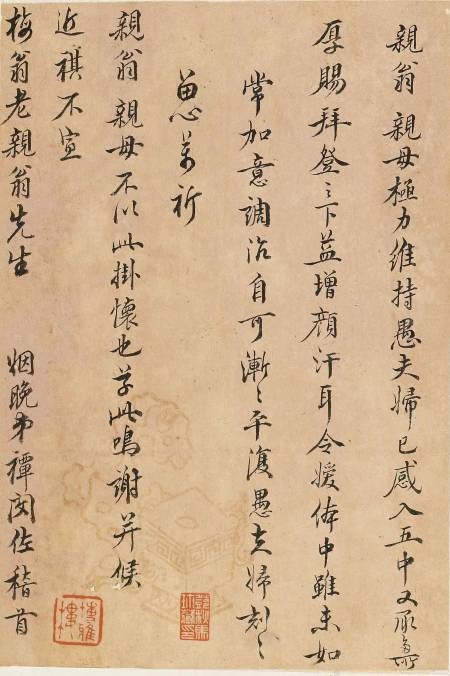 親翁親母極力維持愚夫婦已感入五中又承
厚賜拜登之下益增顏汗耳令嫒体中雖未如
常加意調治自可漸〻平復愚夫婦刻〻
萬祈
親翁親母不以此掛懷也草此鳴謝并候
近祺不宣
梅翁老親翁先生
烟晚弟禫閔佐稽首